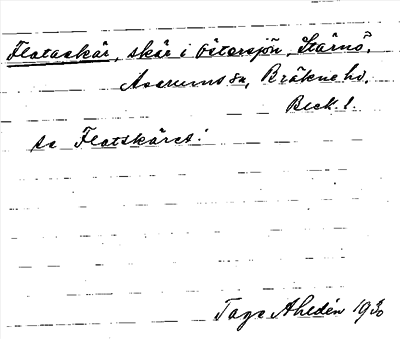 Flataskär, skär i Östersjön, Stärnö,
Asarums sn, Bräkne hd,
Blek. l.
sa Flatskäret:
Tage Ahldén 1930